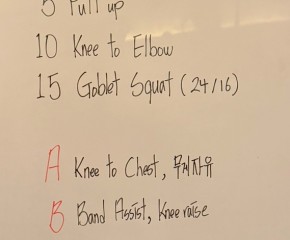 5 Pull up
10 Knee to Elbow
15 Goblet Squat (24/16)
A Knee to Chest, 무게자유
B Band Assist, Knee raise